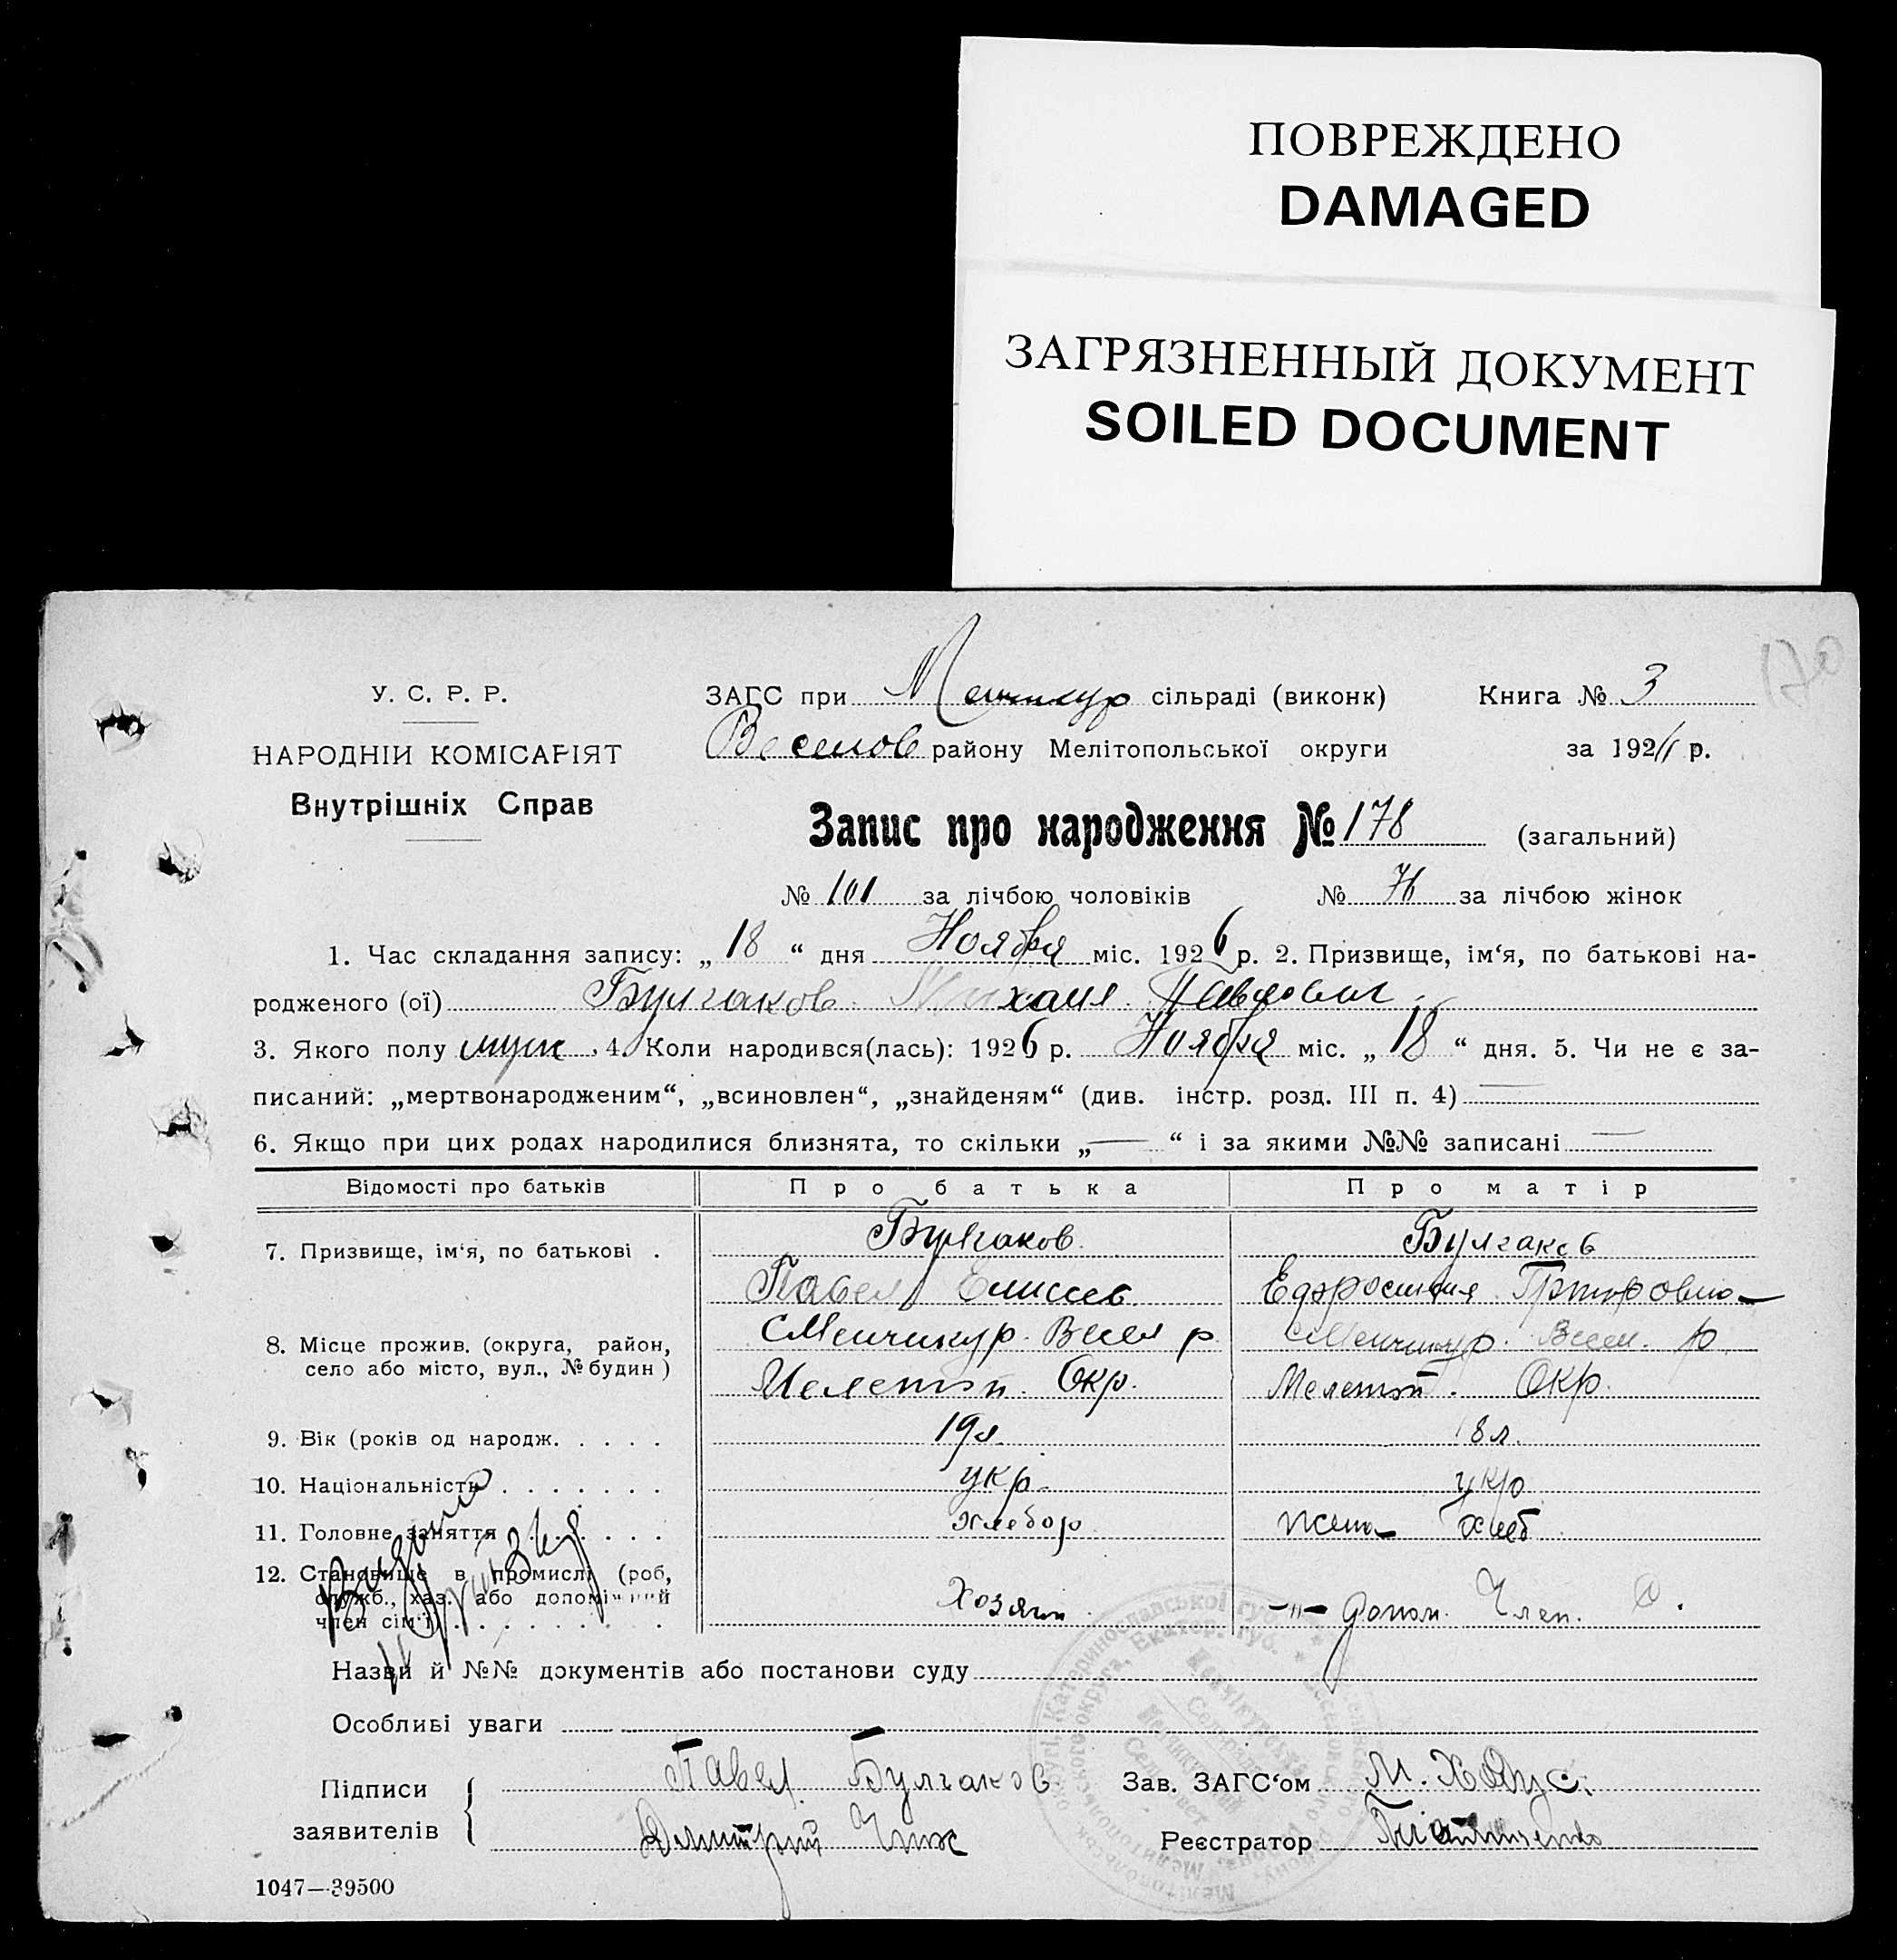 ПОВРЕЖДЕНО
DAMAGED
ЗАГРЯЗНЕННЫЙ ДОКУМЕНТ
SOILED DOCUMENT
170
У. С. Р. Р.
НАРОДНІЙ КОМІСАРІЯТ
Внутрішніх Справ
ЗАГС при Менчикур сільраді (виконк) Книга № 3
Веселов району Мелітопольської округи за 192 р.
Запис про народження № 178 (загальний)
№ 101 за лічбою чоловіків № за лічбою жінок
1. Час складання запису: „ 18 “ дня Ноября міс. 1926 р. 2. Призвище, ім‘я, по батькові на-
родженого (ої) Булгаков Михаил Павлович
3. Якого полу муж 4. Коли народився(лась): 1926 р. Ноября міс. „ 18 “ дня. 5. Чи не є за-
писаний: „мертвонародженим“, „всиновлен“, „знайденям“ (див. інстр. розд. III п. 4) —
6. Якщо при цих родах народилися близнята, то скільки „ — “ і за якими №№ записані —
Відомості про батьків Про батька Про матір
7. Призвище, ім‘я, по батькові . Булгаков Булгаков
Павел Елисеев Ефросиния Григоровна
8. Місце прожив. (округа, район, село або місто, вул., № будин) с Менчикур Весел р с Менчикур Весел. р.
Мелетоп. Окр. Мелетоп. Окр.
9. Вік (років од народж. . . . . 19 л. 18 л.
10. Національність . . . . . . . укр укр
11. Головне заняття . . . . . . хлебор жена хлеб
12. Становище в промислі (роб,
служб., хаз. або допоміжний
член сім‘ї) . . . . . . . . . Хозяин –"– допом. Член.
Назви й №№ документів або постанови суду
Особливі уваги
Підписи заявителів { Павел Булгаков Зав. ЗАГС‘ом М.
Дмитрий Чиж Реєстратор
1047—39500